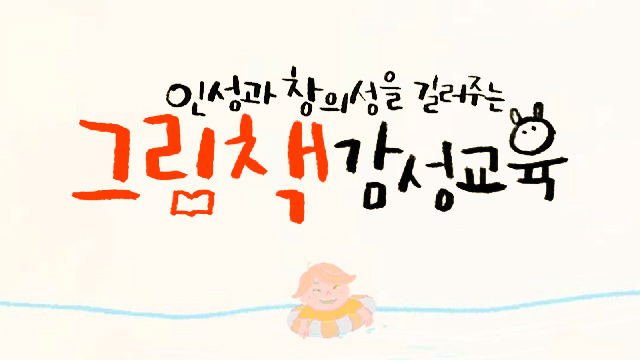 인성과 창의성을 길러주는
그림책 감성교육